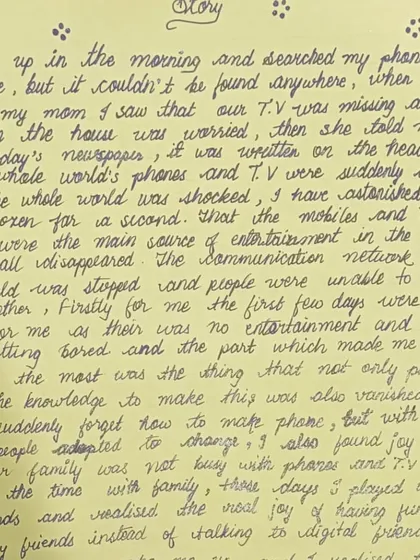 Story
up in the morning and searched my phon
e, but it couldn't be found anywhere, when
my mom I saw that our T.V was missing a
n the house was worried, then she told
day's newspaper, it was written on the hea
whole world's phones and T.V were suddenly
e whole world was shocked, I have astonished
ozen for a sicond. That the mobiles and
were the main source of entertainment in the
all disappeared. The communication network
ld was stopped and people were unable to
ther, Firstly for me the first few days were
or me as their was no entertainment and
tting bored and the part which made me
the most was the thing that not only p
he knowledge to make this was also vanished
suddenly forget how to make phone, but with
people adopted to change, I also found joy
r family was not busy with phones and T.V
the time with family, those days I played
nds and realised the real joy of having fun
y friends instead of talking to digital frien